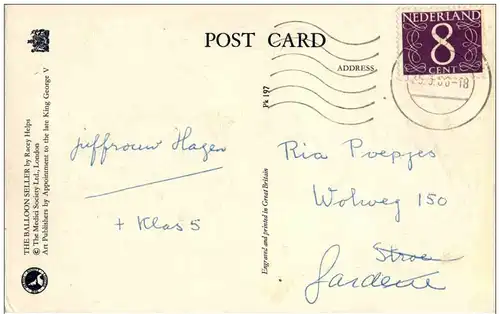 POST CARD
ADDRESS
NEDERLAND
8
CENT
Pk 197
THE BALLOON SELLER by Racey Helps
© The Medici Society Ltd., London
Art Publishers by Appointment to the late King George V
Engraved and printed in Great Britain
juffrouw Hagen
+ Klas 5
Ria Poepjes
Wolweg 150
Stroe
Garderen